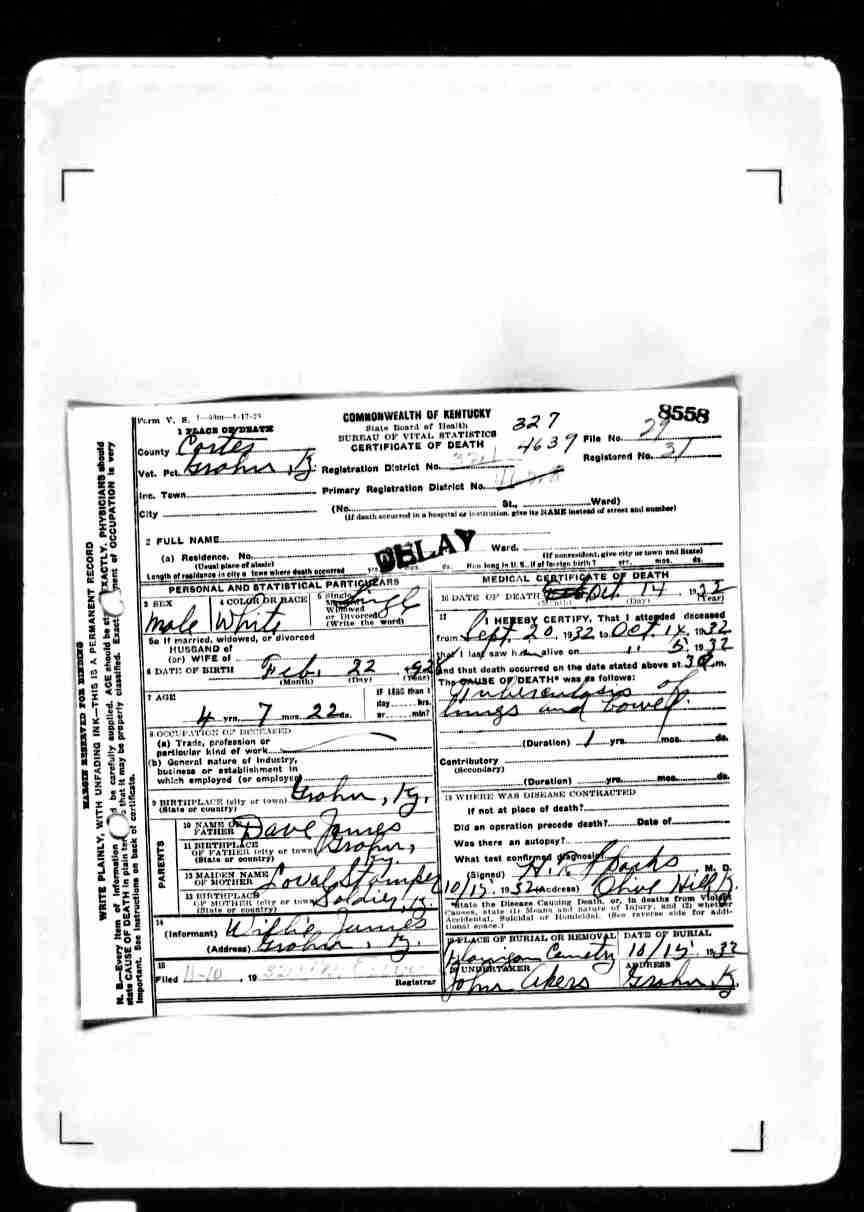 MARGIN RESERVED FOR BINDING
WRITE PLAINLY, WITH UNFADING INK—THIS IS A PERMANENT RECORD
N. B.—Every item of information be carefully supplied. AGE should be EXACTLY. PHYSICIANS should
state CAUSE OF DEATH in plain that it may be properly classified. Exact of OCCUPATION is very
important. See instructions on back of certificate.
Form V. S.
COMMONWEALTH OF KENTUCKY
State Board of Health
BUREAU OF VITAL STATISTICS
CERTIFICATE OF DEATH
327
4639
8558
File No. 29
Registered No. 31
1 PLACE OF DEATH
County Carter
Vot. Pct. Grahn, Ky. Registration District No.
Inc. Town Primary Registration District No.
City (No. St., Ward)
(If death occurred in a hospital or institution, give its NAME instead of street and number)
2 FULL NAME
DELAY
(a) Residence. No. Ward.
(Usual place of abode) (If nonresident, give city or town and State)
Length of residence in city or town where death occurred yrs. mos. ds. How long in U. S., if of foreign birth? yrs. mos. ds.
PERSONAL AND STATISTICAL PARTICULARS
3 SEX 4 COLOR OR RACE 5 Single
Widowed
or Divorced
(Write the word)
Male White Single
5a If married, widowed, or divorced
HUSBAND of
(or) WIFE of
6 DATE OF BIRTH Feb. 22 1928
(Month) (Day) (Year)
7 AGE IF LESS than 1
day hrs.
or min?
4 yrs. 7 mos. 22 ds.
8 OCCUPATION OF DECEASED
(a) Trade, profession or
particular kind of work
(b) General nature of industry,
business or establishment in
which employed (or employer)
9 BIRTHPLACE (city or town) Grahn, Ky.
(State or country)
PARENTS
10 NAME OF
FATHER Dave James
11 BIRTHPLACE
OF FATHER (city or town) Grahn,
(State or country) Ky.
12 MAIDEN NAME
OF MOTHER Loval Stamper
13 BIRTHPLACE
OF MOTHER (city or town) Soldier, K.
(State or country)
14
(Informant) Willie James
(Address) Grahn, Ky.
15
Filed 11-10, 19 32
Registrar
MEDICAL CERTIFICATE OF DEATH
16 DATE OF DEATH Oct. 14 1932
(Month) (Day) (Year)
17 I HEREBY CERTIFY, That I attended deceased
from Sept. 20, 1932 to Oct. 14, 1932
that I last saw h alive on 5, 1932
and that death occurred on the date stated above at m.
The CAUSE OF DEATH* was as follows:
Tuberculosis of
lungs and bowel.
(Duration) 1 yrs. mos. ds.
Contributory
(Secondary)
(Duration) yrs. mos. ds.
18 WHERE WAS DISEASE CONTRACTED
If not at place of death?
Did an operation precede death? Date of
Was there an autopsy?
What test confirmed diagnosis?
(Signed) Sparks M. D.
10/15 1932 (Address) Olive Hill K.
*State the Disease Causing Death, or, in deaths from Violent
Causes, state (1) Means and nature of Injury; and (2) whether
Accidental, Suicidal or Homicidal. (See reverse side for addi-
tional space.)
19 PLACE OF BURIAL OR REMOVAL DATE OF BURIAL
Cemetry 10/15 1932
20 UNDERTAKER ADDRESS
John Akers Grahn, K.